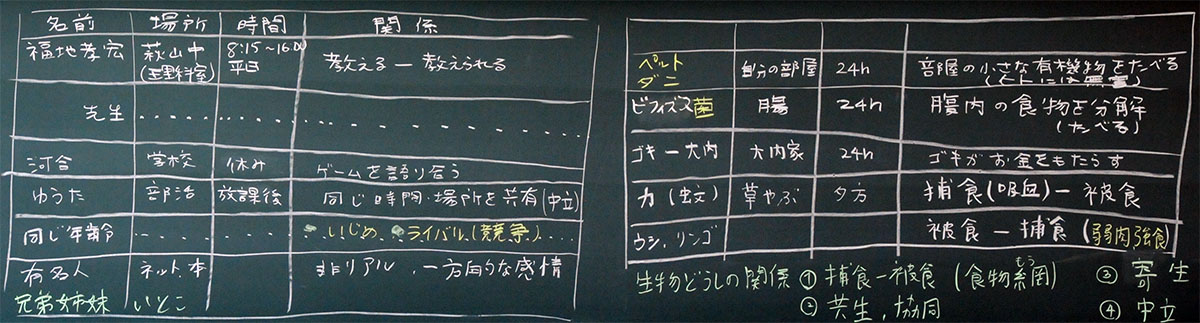 名前 場所 時間 関係
福地孝宏 萩山中 8:15~16:00 教える－教えられる
(理科室) 平日
先生
河合 学校 休み ゲームを語り合う
ゆうた 部活 放課後 同じ時間・場所を共有(中立)
同じ年齢 いじめ ライバル(競争)
有名人 ネット、本 非リアル、一方向的な感情
兄弟姉妹 いとこ
ペルト 自分の部屋 24h 部屋の小さな有機物をたべる
ダニ (ヒトには無害)
ビフィズス菌 腸 24h 腹内の食物を分解
(たべる)
ゴキ－大内 大内家 24h ゴキがお金をもたらす
カ(蚊) 草やぶ 夕方 捕食(吸血)－被食
ウシ、リンゴ 被食－捕食(弱肉強食)
生物どうしの関係 ① 捕食－被食 (食物網) ③ 寄生
もう
② 共生、協同 ④ 中立